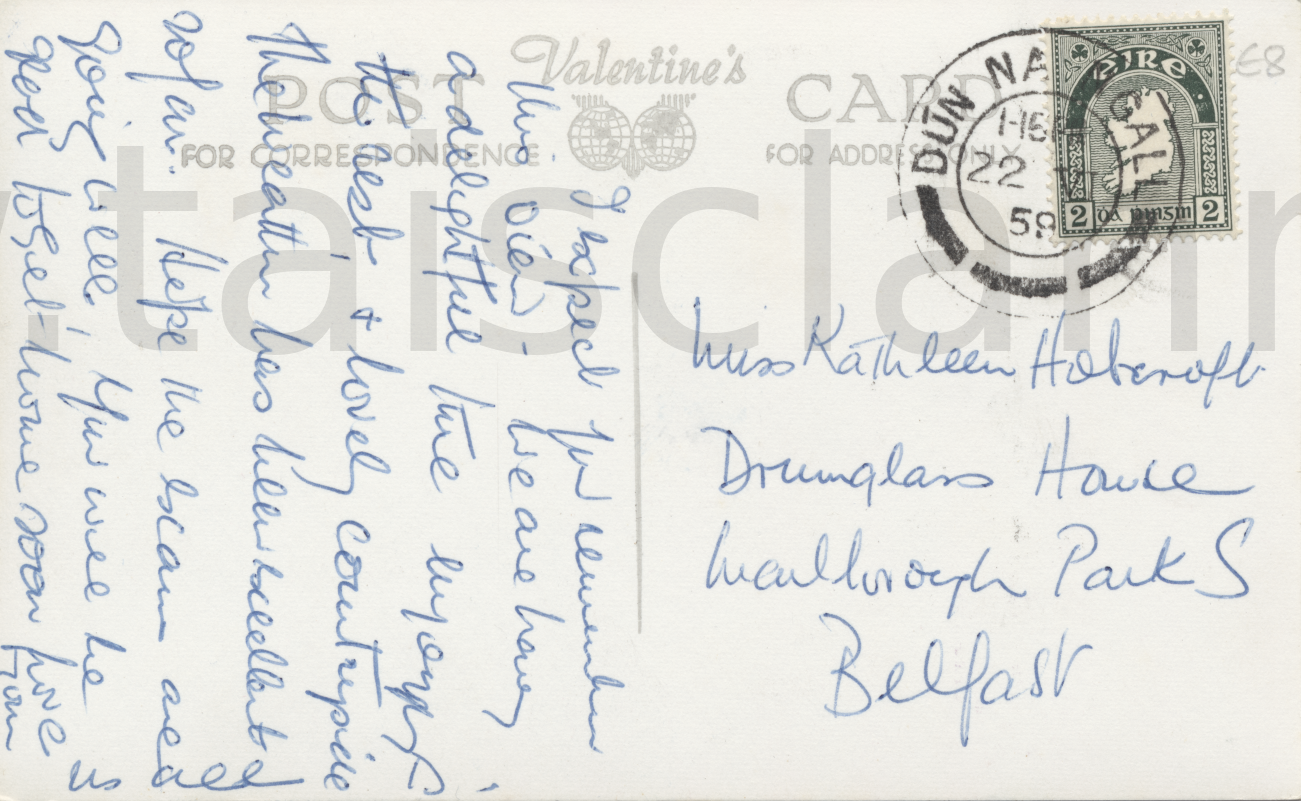 Valentine's
POST CARD
FOR CORRESPONDENCE
FOR ADDRESS ONLY
DÚN NA GALL
22
59
ÉIRE
2 2
E8
I expect you remember
this view - we are having
a delightful time enjoying
the rest & lovely countryside
The weather has been excellent
so far. Hope the exams are all
going well. You will be
glad to get home soon love
Miss Kathleen Holcroft
Drumglass House
Marlborough Park S
Belfast
.taisclann